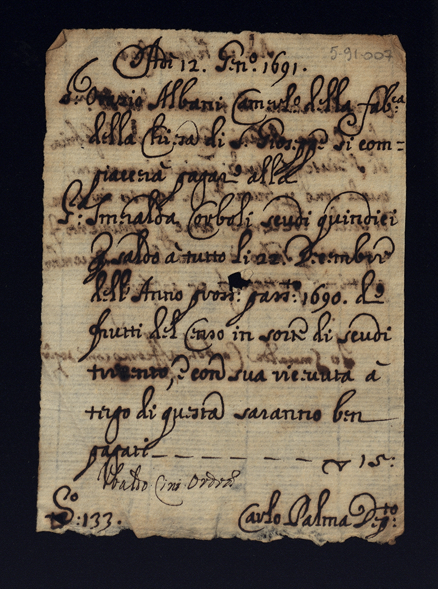 Adi 12. Gen.º 1691.
5-91-007
S.r Orazio Albani Camerl.º della fab.ca
della Chiesa di S. Gioseppe si com=
piacerà pagare alla
S.ra Smeralda Corboli scudi quindici
saldo à tutto li 22. Decembre
dell'Anno pross.º pass.to 1690. de
frutti del Censo in sorte di scudi
trecento, e con sua ricevuta à
tergo di questa saranno ben
pagati — — — — — — — ∇ 15:
Ubaldo Cini
Sº:133.
Carlo Palma Dep.to